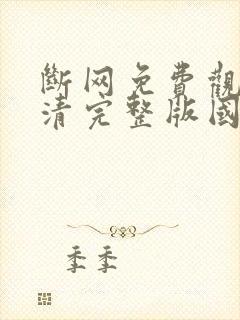 斷网免費觀
清完整版國
季季